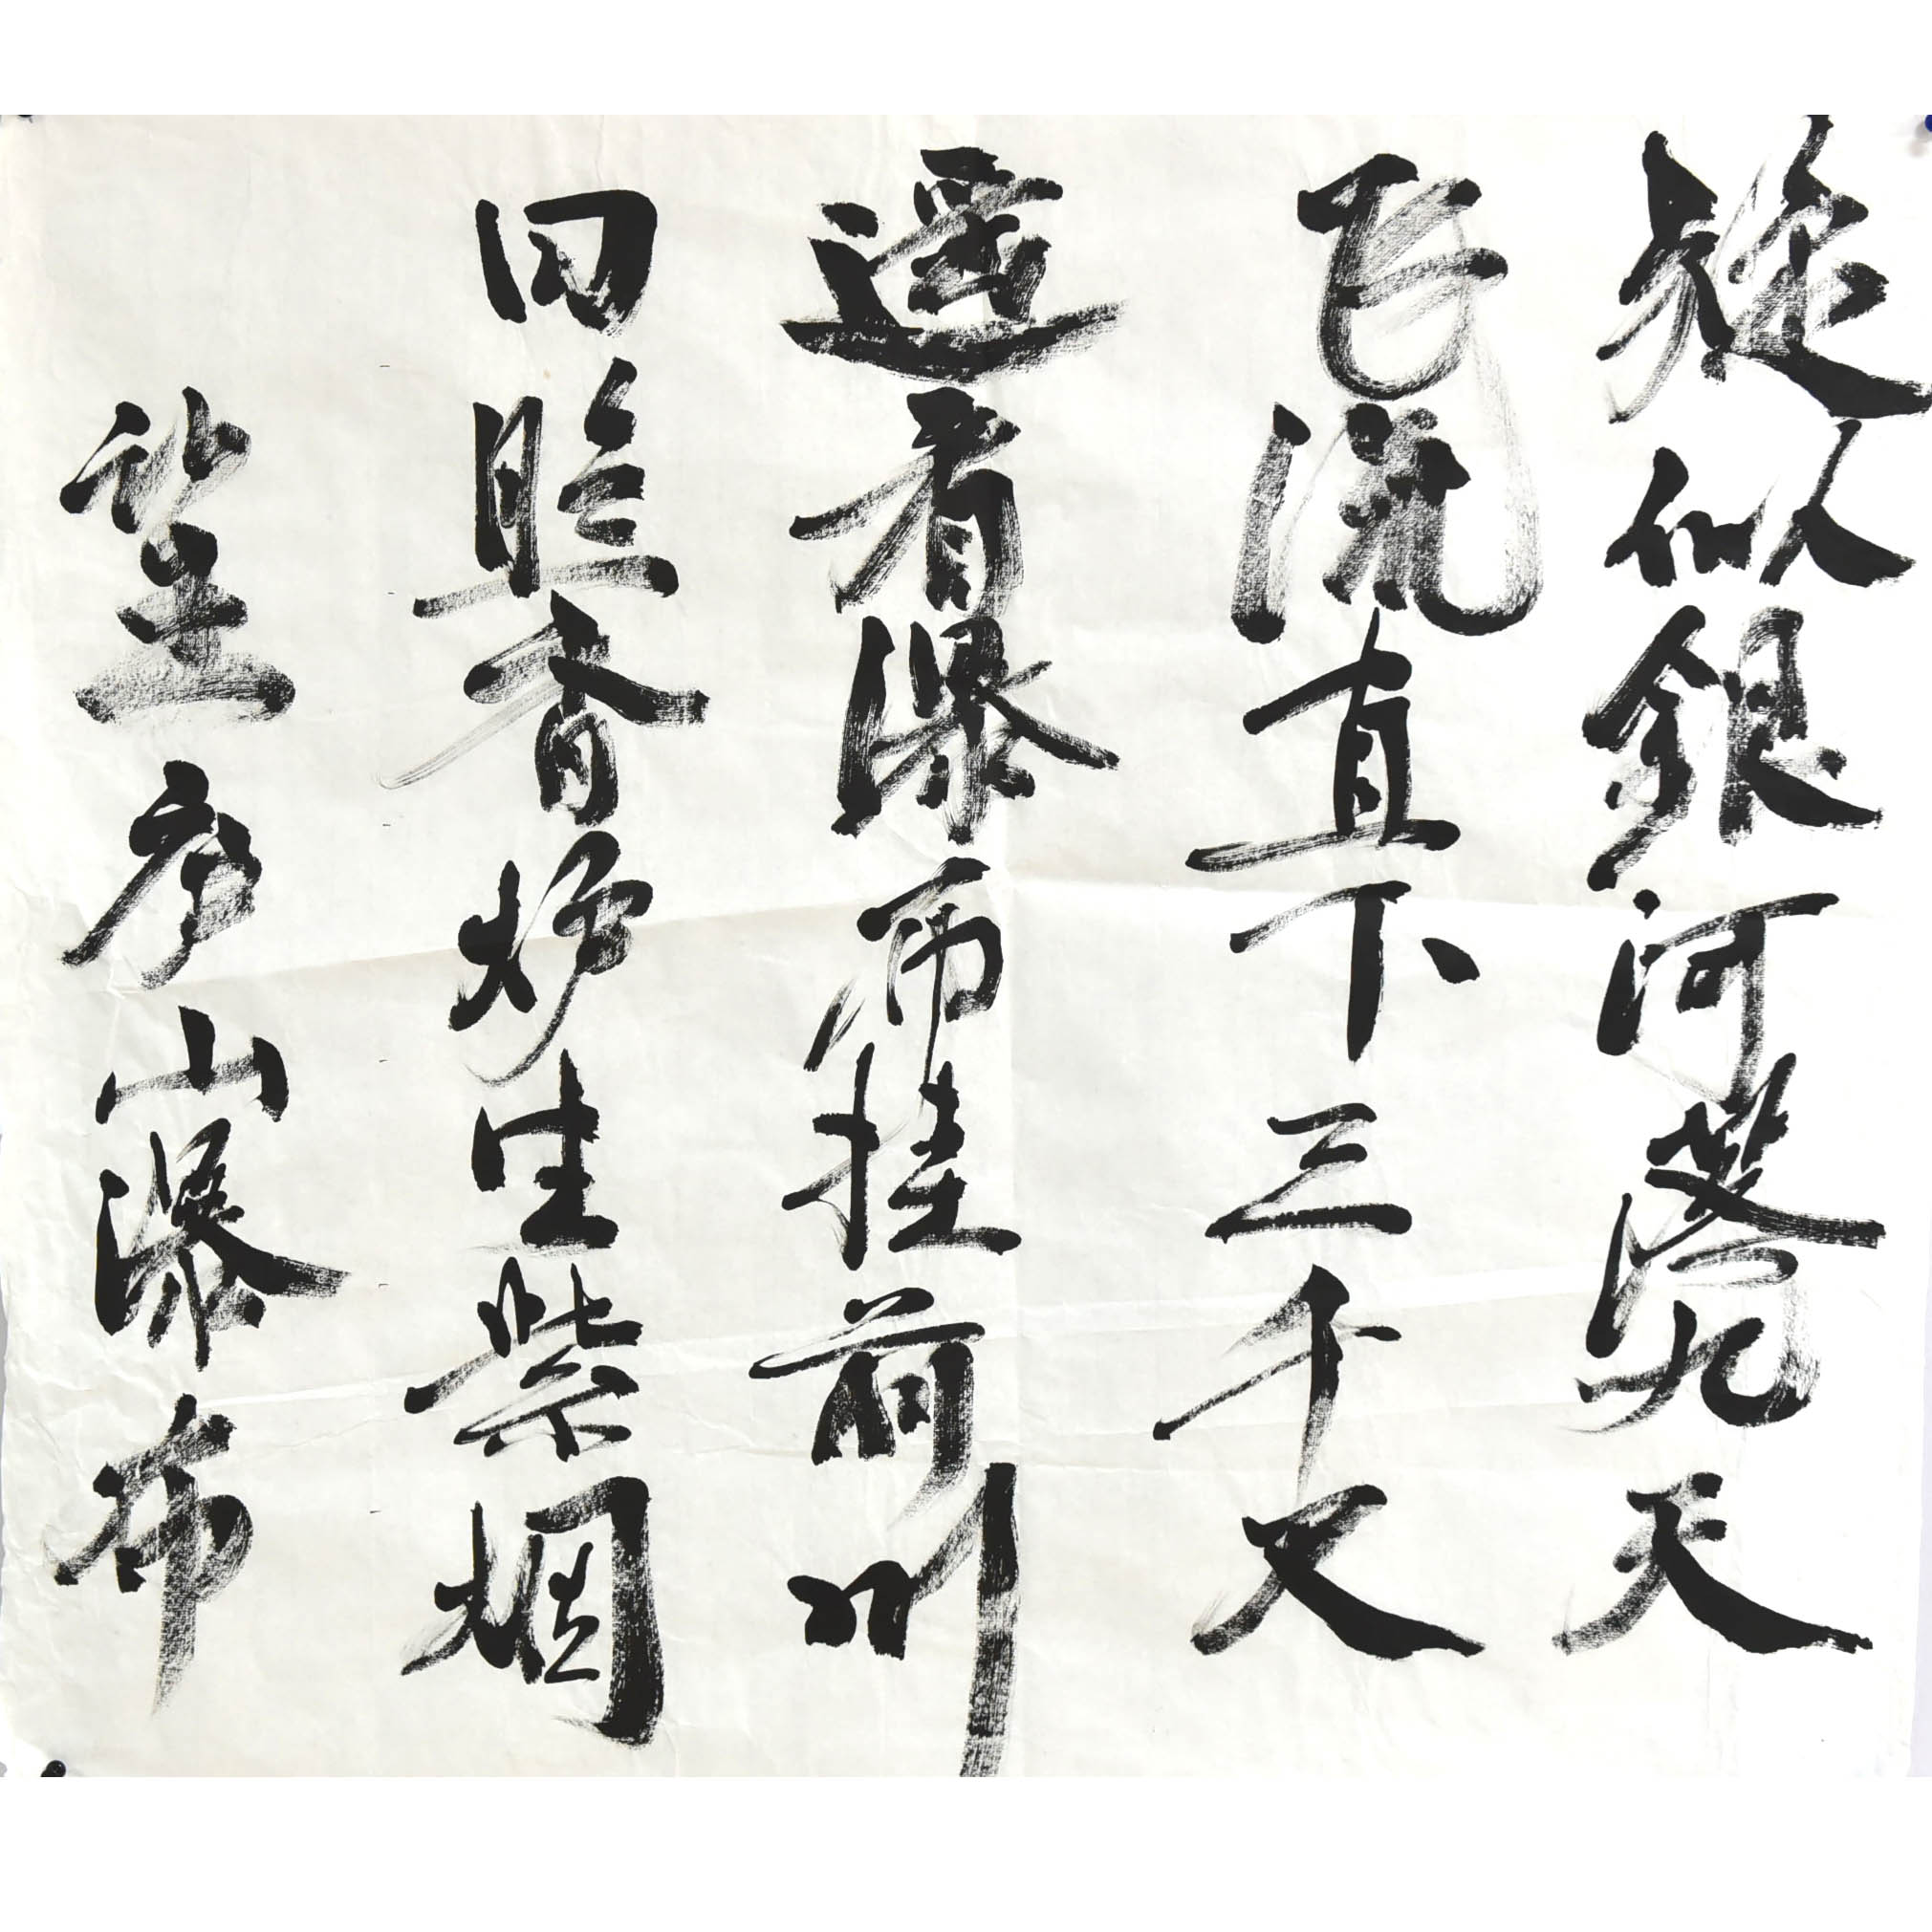 望庐山瀑布
日照香炉生紫烟
遥看瀑布挂前川
飞流直下三千尺
疑似銀河落九天